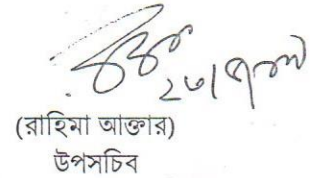 (রাহিমা আক্তার)
উপসচিব